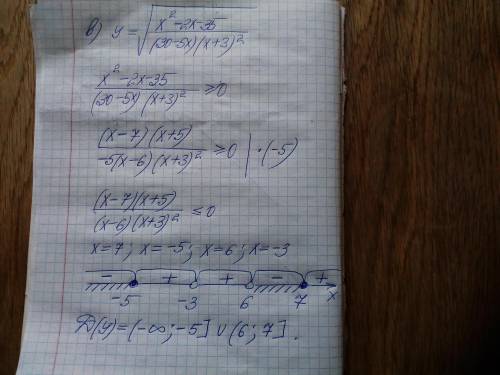 в) y = √((x²-2x-35)/((30-5x)(x+3)²))
(x²-2x-35)/((30-5x)(x+3)²) ≥0
((x-7)(x+5))/(-5(x-6)(x+3)²) ≥0 | ·(-5)
((x-7)(x+5))/((x-6)(x+3)²) ≤0
x=7; x=-5; x=6; x=-3
- + + - +
-5 -3 6 7 x
D(y)=(-∞;-5]∪(6;7].